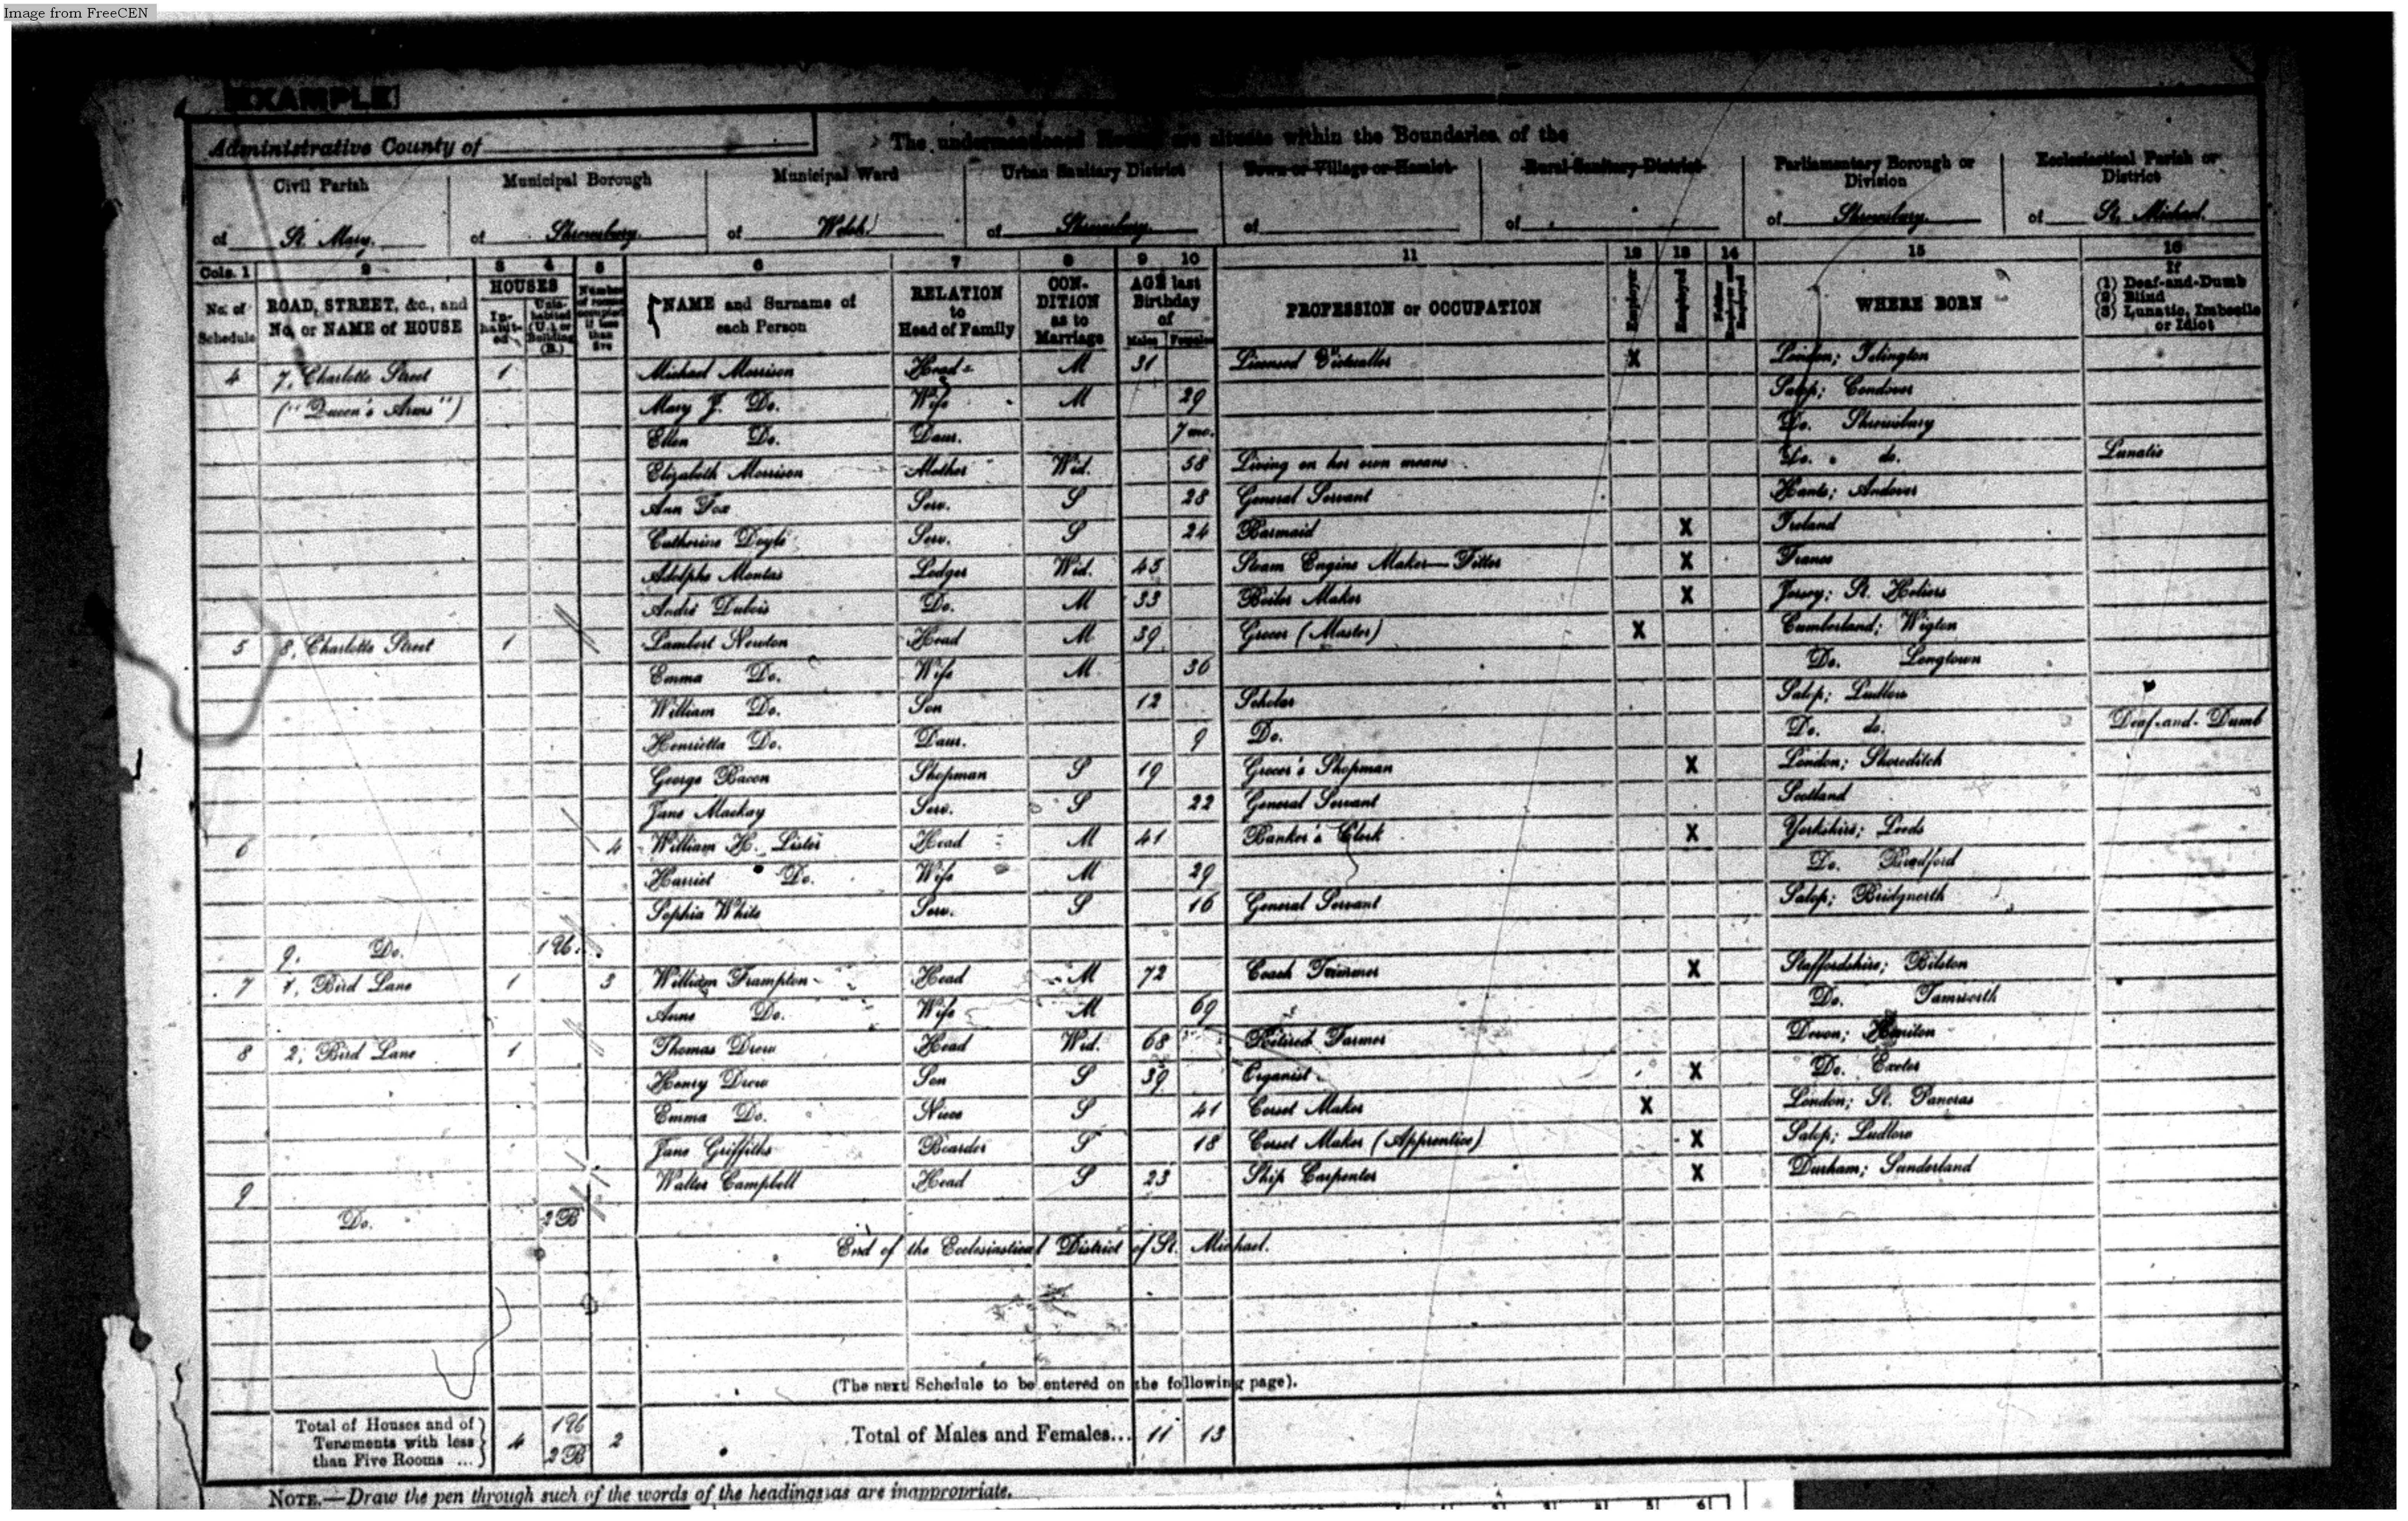 Image from FreeCEN
EXAMPLE
Administrative County of
The undermentioned Houses are situate within the Boundaries of the
Civil Parish
Municipal Borough
Municipal Ward
Urban Sanitary District
Town or Village or Hamlet
Rural Sanitary District
Parliamentary Borough or Division
Ecclesiastical Parish or District
of St. Mary. of Shrewsbury. of Welsh of Shrewsbury. of of of Shrewsbury. of St. Michael.
Cols. 1 2 3 4 5 6 7 8 9 10 11 12 13 14 15 16
No. of Schedule
ROAD, STREET, &c., and No. or NAME of HOUSE
HOUSES
In-habit-ed
Unin-habited (U.) or Building (B.)
Number of rooms occupied if less than five
NAME and Surname of each Person
RELATION to Head of Family
CON-DITION as to Marriage
AGE last Birthday of
Males Females
PROFESSION or OCCUPATION
Employer
Employed
Neither Employer nor Employed
WHERE BORN
If
(1) Deaf-and-Dumb
(2) Blind
(3) Lunatic, Imbecile or Idiot
4 7, Charlotte Street 1 Michael Morrison Head M 31 Licensed Victualler X London; Islington
("Queen's Arms") Mary J. Do. Wife M 29 Salop; Condover
Ellen Do. Daur. 7 mo. Do. Shrewsbury
Elizabeth Morrison Mother Wid. 58 Living on her own means Do. do. Lunatic
Ann Fox Serv. S 28 General Servant Hants; Andover
Catherine Doyle Serv. S 24 Barmaid X Ireland
Adolphe Montas Lodger Wid. 45 Steam Engine Maker—Fitter X France
André Dubois Do. M 33 Boiler Maker X Jersey; St. Heliers
5 8, Charlotte Street 1 Lambert Newton Head M 39 Grocer (Master) X Cumberland; Wigton
Emma Do. Wife M 36 Do. Longtown
William Do. Son 12 Scholar Salop; Ludlow
Henrietta Do. Daur. 9 Do. Do. do. Deaf-and-Dumb
George Bacon Shopman S 19 Grocer's Shopman X London; Shoreditch
Jane Mackay Serv. S 22 General Servant Scotland
6 4 William H. Lister Head M 41 Banker's Clerk X Yorkshire; Leeds
Harriet Do. Wife M 29 Do. Bradford
Sophia White Serv. S 16 General Servant Salop; Bridgnorth
9, Do. 1 U.
7 1, Bird Lane 1 3 William Frampton Head M 72 Coach Trimmer X Staffordshire; Bilston
Anne Do. Wife M 69 Do. Tamworth
8 2, Bird Lane 1 Thomas Drew Head Wid. 68 Retired Farmer Devon; Honiton
Henry Drew Son S 39 Organist X Do. Exeter
Emma Do. Niece S 41 Corset Maker X London; St. Pancras
Jane Griffiths Boarder S 18 Corset Maker (Apprentice) X Salop; Ludlow
9 Walter Campbell Head S 23 Ship Carpenter X Durham; Sunderland
Do. 2 B
End of the Ecclesiastical District of St. Michael.
(The next Schedule to be entered on the following page).
Total of Houses and of Tenements with less than Five Rooms ... 4 1 U 2 B 2 Total of Males and Females... 11 13
NOTE.—Draw the pen through such of the words of the headings as are inappropriate.